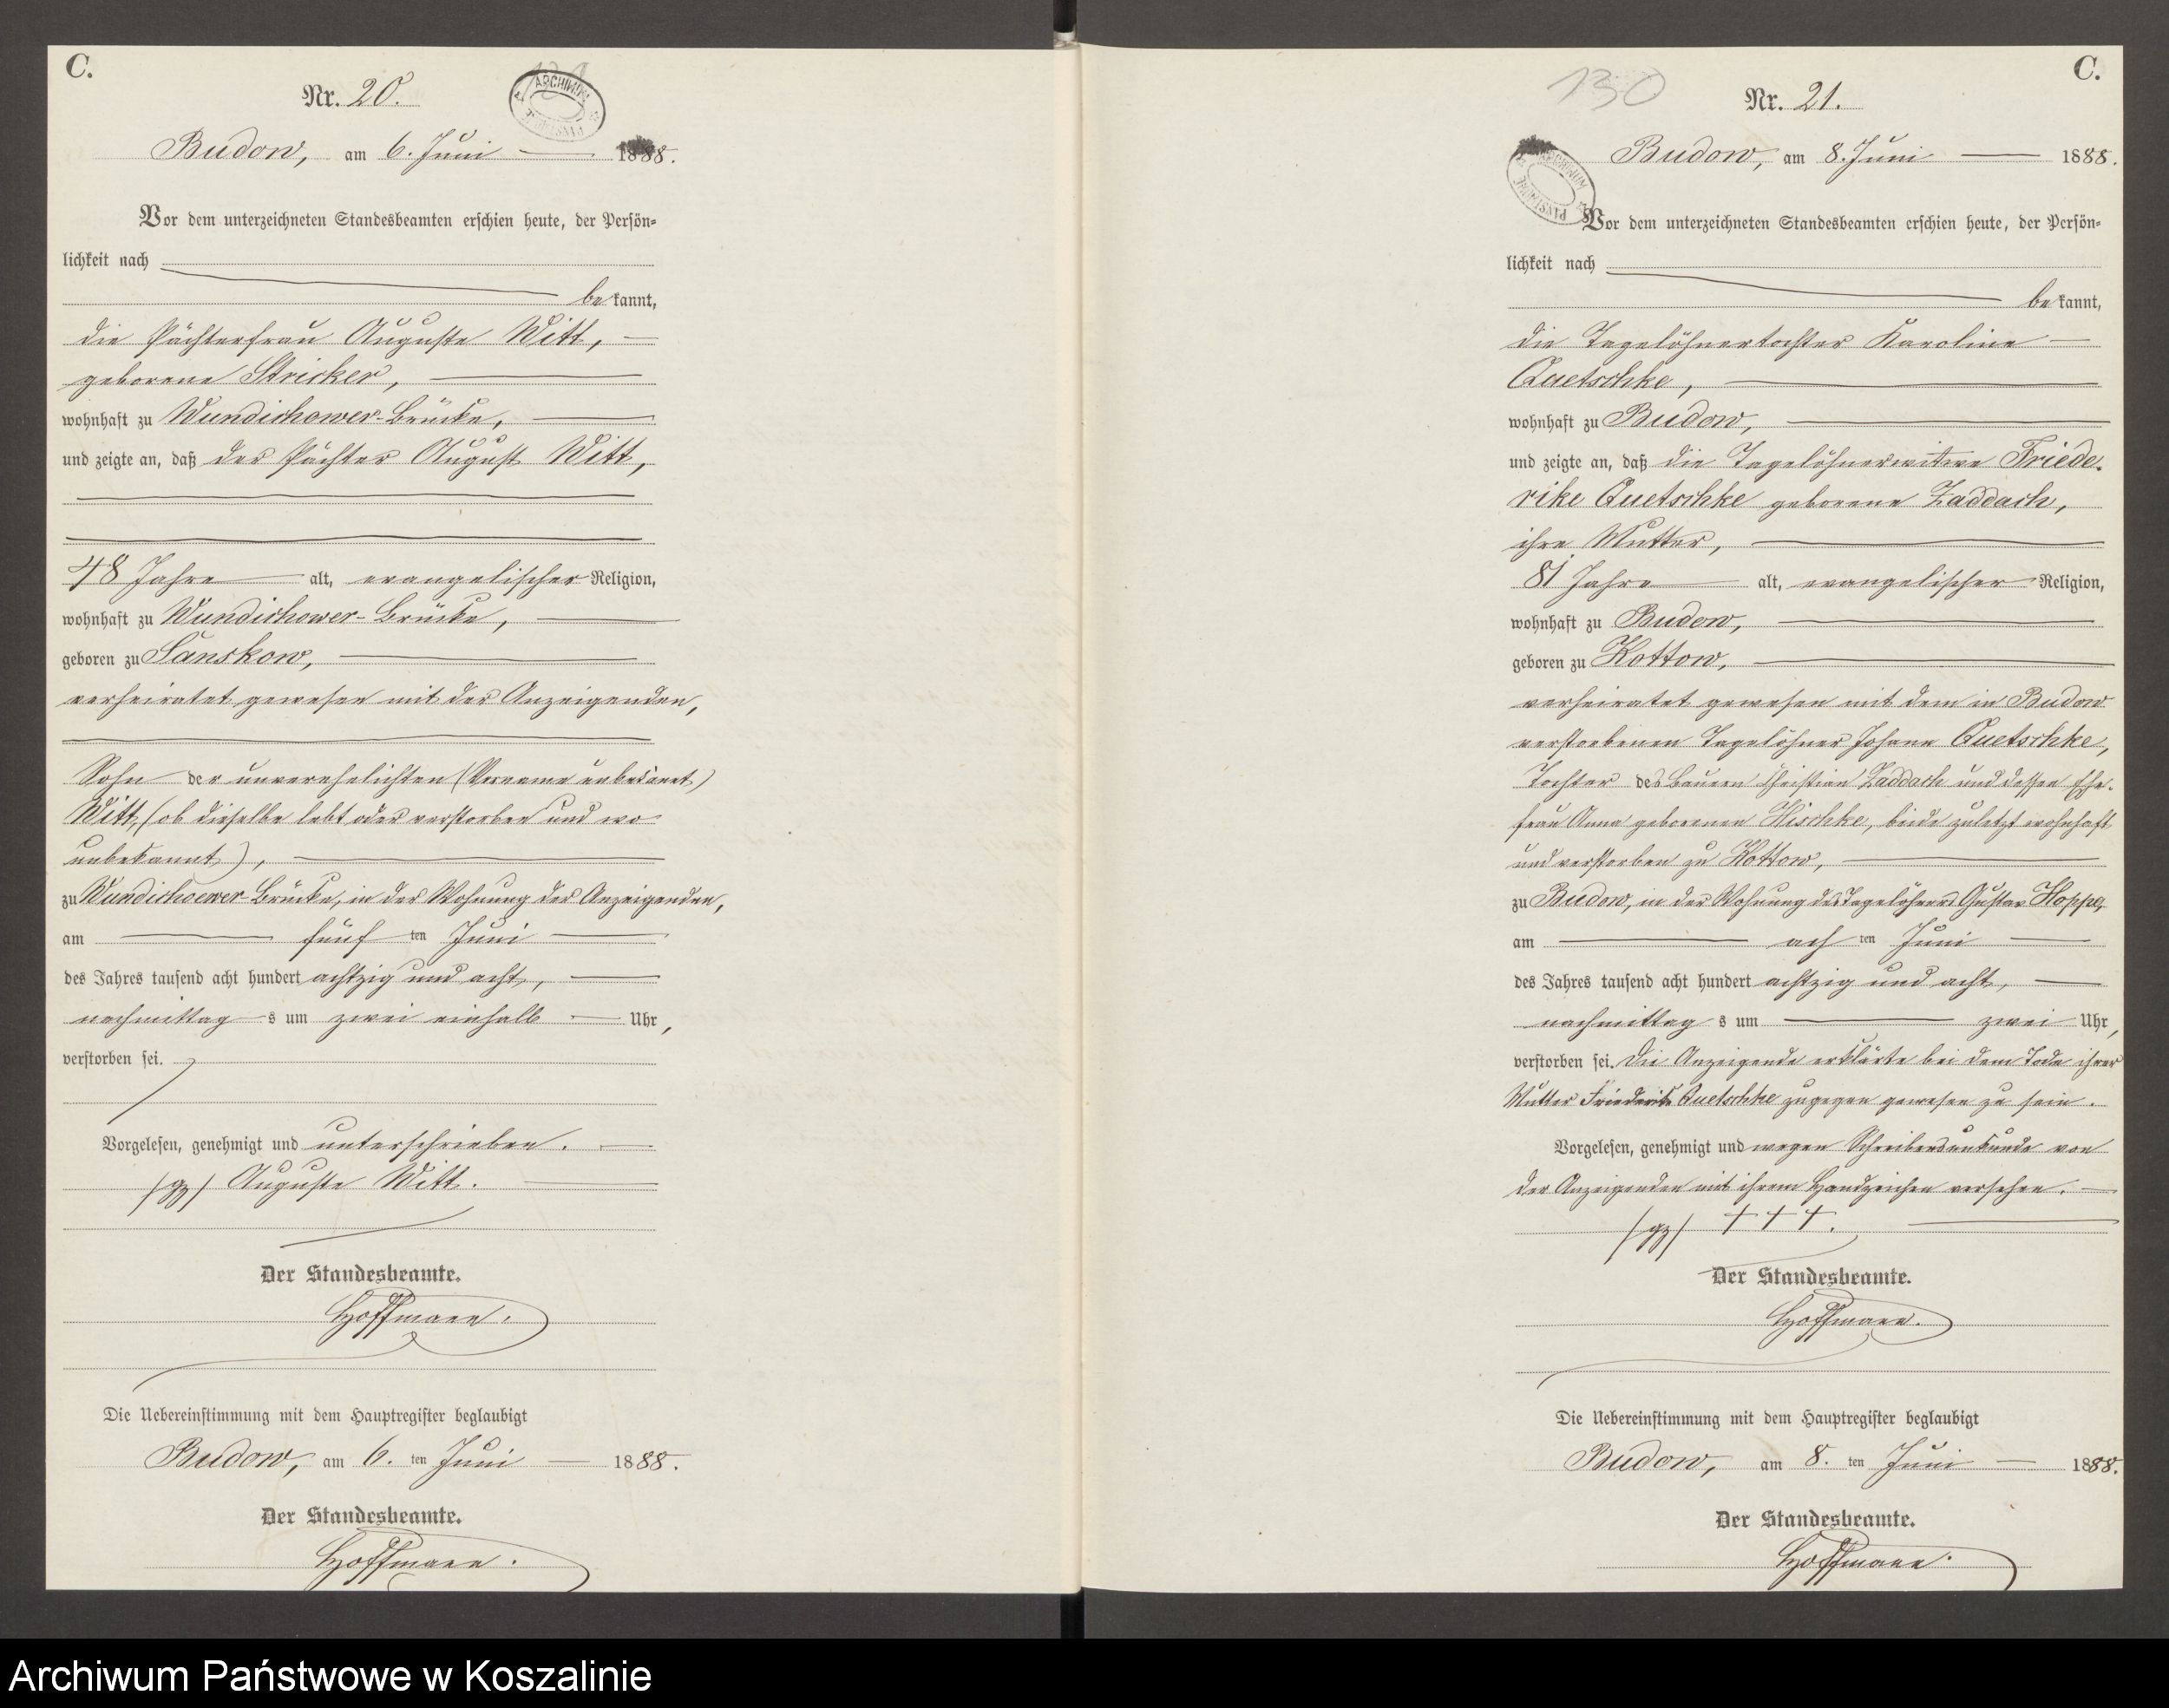 C.
Nr. 20.
Budow, am 6. Juni 1888.
Vor dem unterzeichneten Standesbeamten erschien heute, der Persön-
lichkeit nach
bekannt,
die Pächterfrau Auguste Witt,
geborene Stricker,
wohnhaft zu Wundichower-Brücke,
und zeigte an, daß der Pächter August Witt,
48 Jahre alt, evangelischer Religion,
wohnhaft zu Wundichower-Brücke,
geboren zu Sanskow,
verheiratet gewesen mit der Anzeigenden,
Sohn der unverehelichten (Vorname unbekannt)
Witt, (ob dieselbe lebt oder verstorben und wo
unbekannt),
zu Wundichower-Brücke, in der Wohnung der Anzeigenden,
am fünf ten Juni
des Jahres tausend acht hundert achtzig und acht,
nachmittags um zwei einhalb Uhr,
verstorben sei.
Vorgelesen, genehmigt und unterschrieben.
(gz) Auguste Witt.
Der Standesbeamte.
Hoffmann.
Die Uebereinstimmung mit dem Hauptregister beglaubigt
Budow, am 6. ten Juni 1888.
Der Standesbeamte.
Hoffmann.
130
C.
Nr. 21.
Budow, am 8. Juni 1888.
Vor dem unterzeichneten Standesbeamten erschien heute, der Persön-
lichkeit nach
bekannt,
die Tagelöhnertochter Karoline
Quetschke,
wohnhaft zu Budow,
und zeigte an, daß die Tagelöhnerwitwe Friede-
rike Quetschke geborene Zaddach,
ihre Mutter,
81 Jahre alt, evangelischer Religion,
wohnhaft zu Budow,
geboren zu Kottow,
verheiratet gewesen mit dem in Budow
verstorbenen Tagelöhner Johann Quetschke,
Tochter des Bauern Christian Zaddach und dessen Ehe-
frau Anna geborenen Hischke, beide zuletzt wohnhaft
und verstorben zu Kottow,
zu Budow, in der Wohnung des Tagelöhners Gustav Hoppe,
am ach ten Juni
des Jahres tausend acht hundert achtzig und acht,
nachmittags um zwei Uhr,
verstorben sei. Die Anzeigende erklärte bei dem Tode ihrer
Mutter Friederike Quetschke zugegen gewesen zu sein.
Vorgelesen, genehmigt und wegen Schreibensunkunde von
der Anzeigenden mit ihrem Handzeichen versehen.
(gz) + + +.
Der Standesbeamte.
Hoffmann.
Die Uebereinstimmung mit dem Hauptregister beglaubigt
Budow, am 8. ten Juni 1888.
Der Standesbeamte.
Hoffmann.
Archiwum Państwowe w Koszalinie